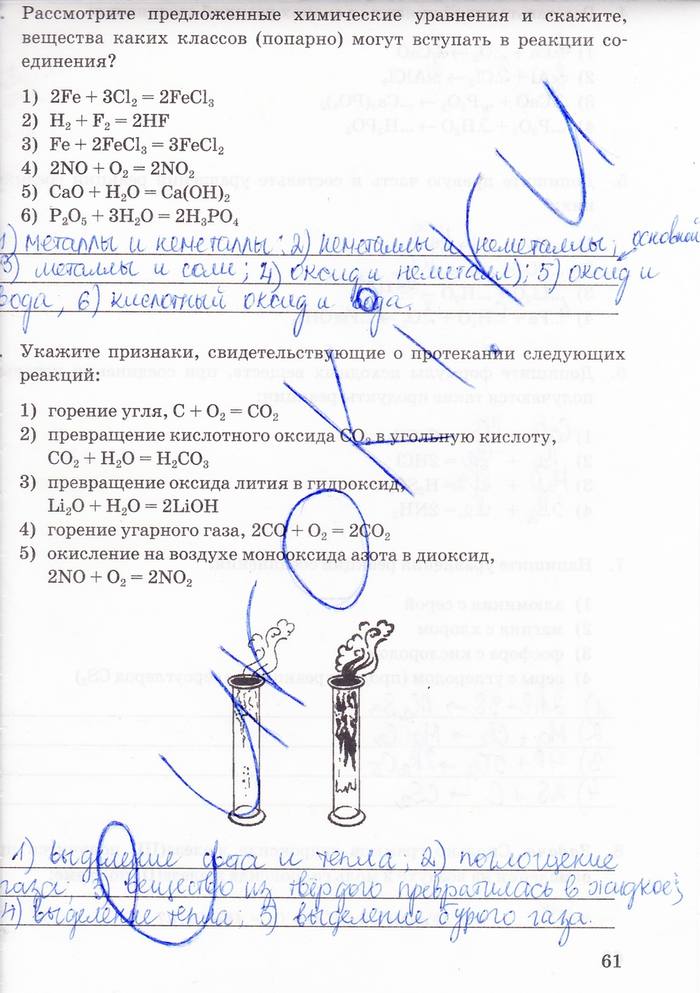 Рассмотрите предложенные химические уравнения и скажите,
вещества каких классов (попарно) могут вступать в реакции со-
единения?
1) 2Fe + 3Cl₂ = 2FeCl₃
2) H₂ + F₂ = 2HF
3) Fe + 2FeCl₃ = 3FeCl₂
4) 2NO + O₂ = 2NO₂
5) CaO + H₂O = Ca(OH)₂
6) P₂O₅ + 3H₂O = 2H₃PO₄
1) металлы и неметаллы; 2) неметаллы и неметаллы; основной
3) металлы и соли; 4) оксид и неметалл); 5) оксид и
вода; 6) кислотный оксид и вода.
Укажите признаки, свидетельствующие о протекании следующих
реакций:
1) горение угля, C + O₂ = CO₂
2) превращение кислотного оксида CO₂ в угольную кислоту,
CO₂ + H₂O = H₂CO₃
3) превращение оксида лития в гидроксид,
Li₂O + H₂O = 2LiOH
4) горение угарного газа, 2CO + O₂ = 2CO₂
5) окисление на воздухе монооксида азота в диоксид,
2NO + O₂ = 2NO₂
1) выделение света и тепла; 2) поглощение
газа; 3) вещество из твёрдого превратилась в жидкое;
4) выделение тепла; 5) выделение бурого газа.
61